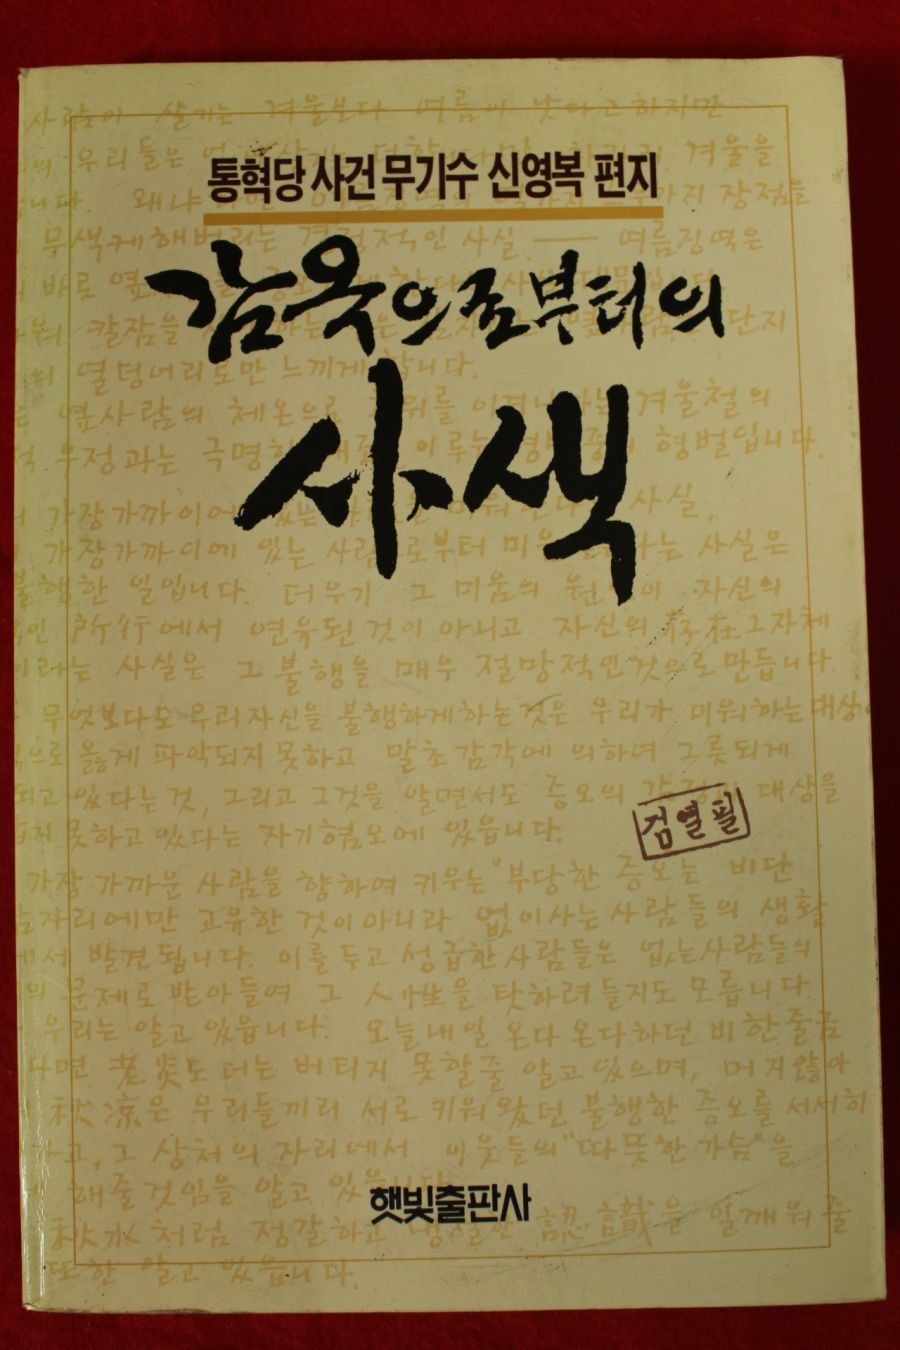 통혁당 사건 무기수 신영복 편지
감옥으로부터의
사색
사람이 살기는 겨울보다 여름이 낫다고하지만
우리들은 겨울을
왜냐 장점을
무색케해버리는 결정적인 사실 ─ 여름징역은
바로 옆
칼잠을 단지
열덩어리로만 느끼게 합니다.
옆사람의 체온으로 이겨나가는 겨울철의
우정과는 극명한 이루는 형벌입니다.
가장가까이에 있는 사실,
가장가까이에 있는 사람으로부터 미움 사실은
불행한 일입니다. 더우기 그 미움의 원인이 자신의
所行에서 연유된것이 아니고 자신의 存在그자체
이라는 사실은 그 불행을 매우 절망적인것으로 만듭니다.
무엇보다도 우리자신을 불행하게하는것은 우리가 미워하는대상이
옳게 파악되지못하고 말초감각에 의하여 그릇되게
되고 있다는것, 그리고 그것을 알면서도 증오의 감정과 대상을
못하고 있다는 자기혐오에 있읍니다.
검열필
가장 가까운 사람을 향하여 키우는 "부당한 증오는 비단
자리에만 고유한 것이아니라 없이사는사람들의 생활
에서 발견됩니다. 이를두고 성급한사람들은 없는사람들의
문제로 받아들여 그 人性을 탓하려들지도 모릅니다.
우리는 알고 있읍니다. 오늘내일 온다 온다하던 비 한줄금
나면 老炎도 더는 버티지 못할줄 알고있으며, 머지않아
秋凉은 우리들끼리 서로 키워왔던 불행한 증오를 서서히
고, 그 상처의 자리에서 이웃들의 "따뜻한 가슴"을
해줄것임을 알고 있읍니다.
秋水처럼 정갈하고 認識을 일깨워줄
또한 알고 있읍니다.
햇빛출판사